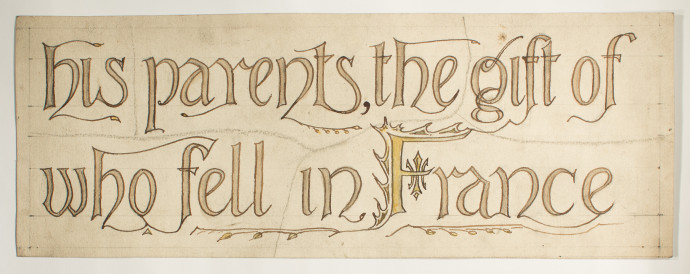 his parents, the gift of
who fell in France